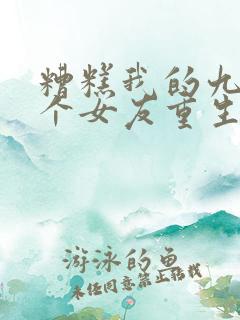 糟糕我的九
个女友重生
游泳的鱼
未经同意禁止转载